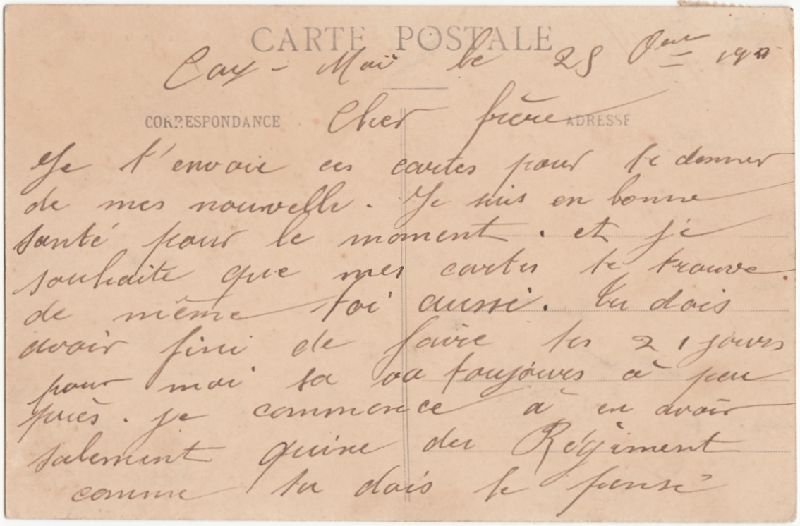 CARTE POSTALE
Cay - Maï le 25 190
CORRESPONDANCE Cher frère ADRESSE
Je t'envoie ces cartes pour te donner
de mes nouvelle. Je suis en bonne
santé pour le moment. et je
souhaite que mes cartes te trouve
de même toi aussi. tu dois
avoir fini de faire tes 21 jours
pour moi sa va toujours à peu
près. je commence à en avoir
salement quine du Régiment
comme tu dois le pensé